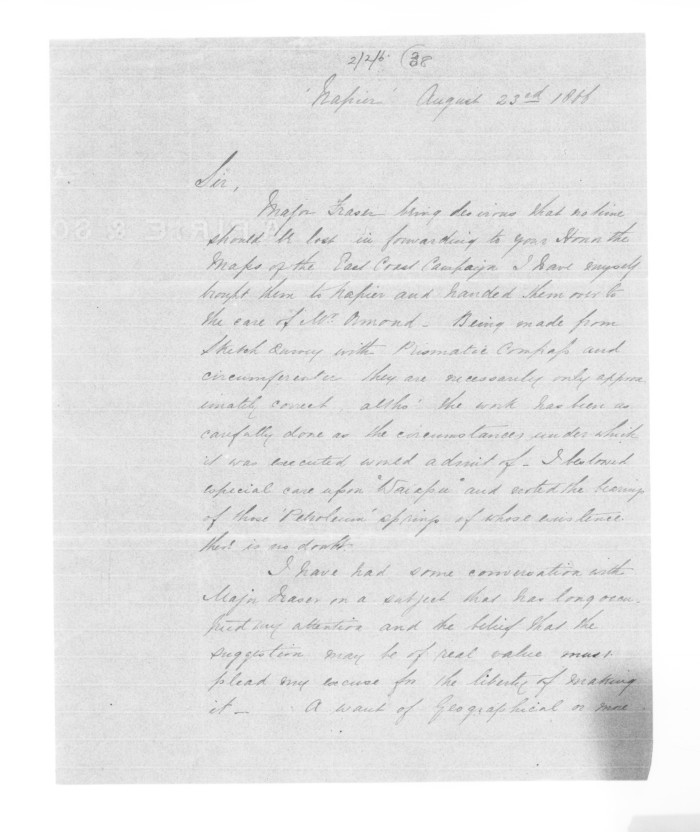 2/2/6 (38
'Napier' August 23rd 1866
Sir,
Major Fraser being desirous that no time
should be lost in forwarding to your Honor the
Maps of the East Coast Campaign I have myself
brought them to Napier and handed them over to
the care of Mr Ormond - Being made from
Sketch Survey with Prismatic Compass and
circumferenter they are necessarily only approx
imately correct altho' the work has been as
carefully done as the circumstances under which
it was executed would admit of - I bestowed
especial care upon "Waiapu" and noted the bearings
of those 'Petroleum' springs of whose existence
there is no doubt.
I have had some conversation with
Major Fraser on a subject that has long occu
pied my attention and the belief that the
suggestion may be of real value must
plead my excuse for the liberty of making
it - A want of Geographical or more